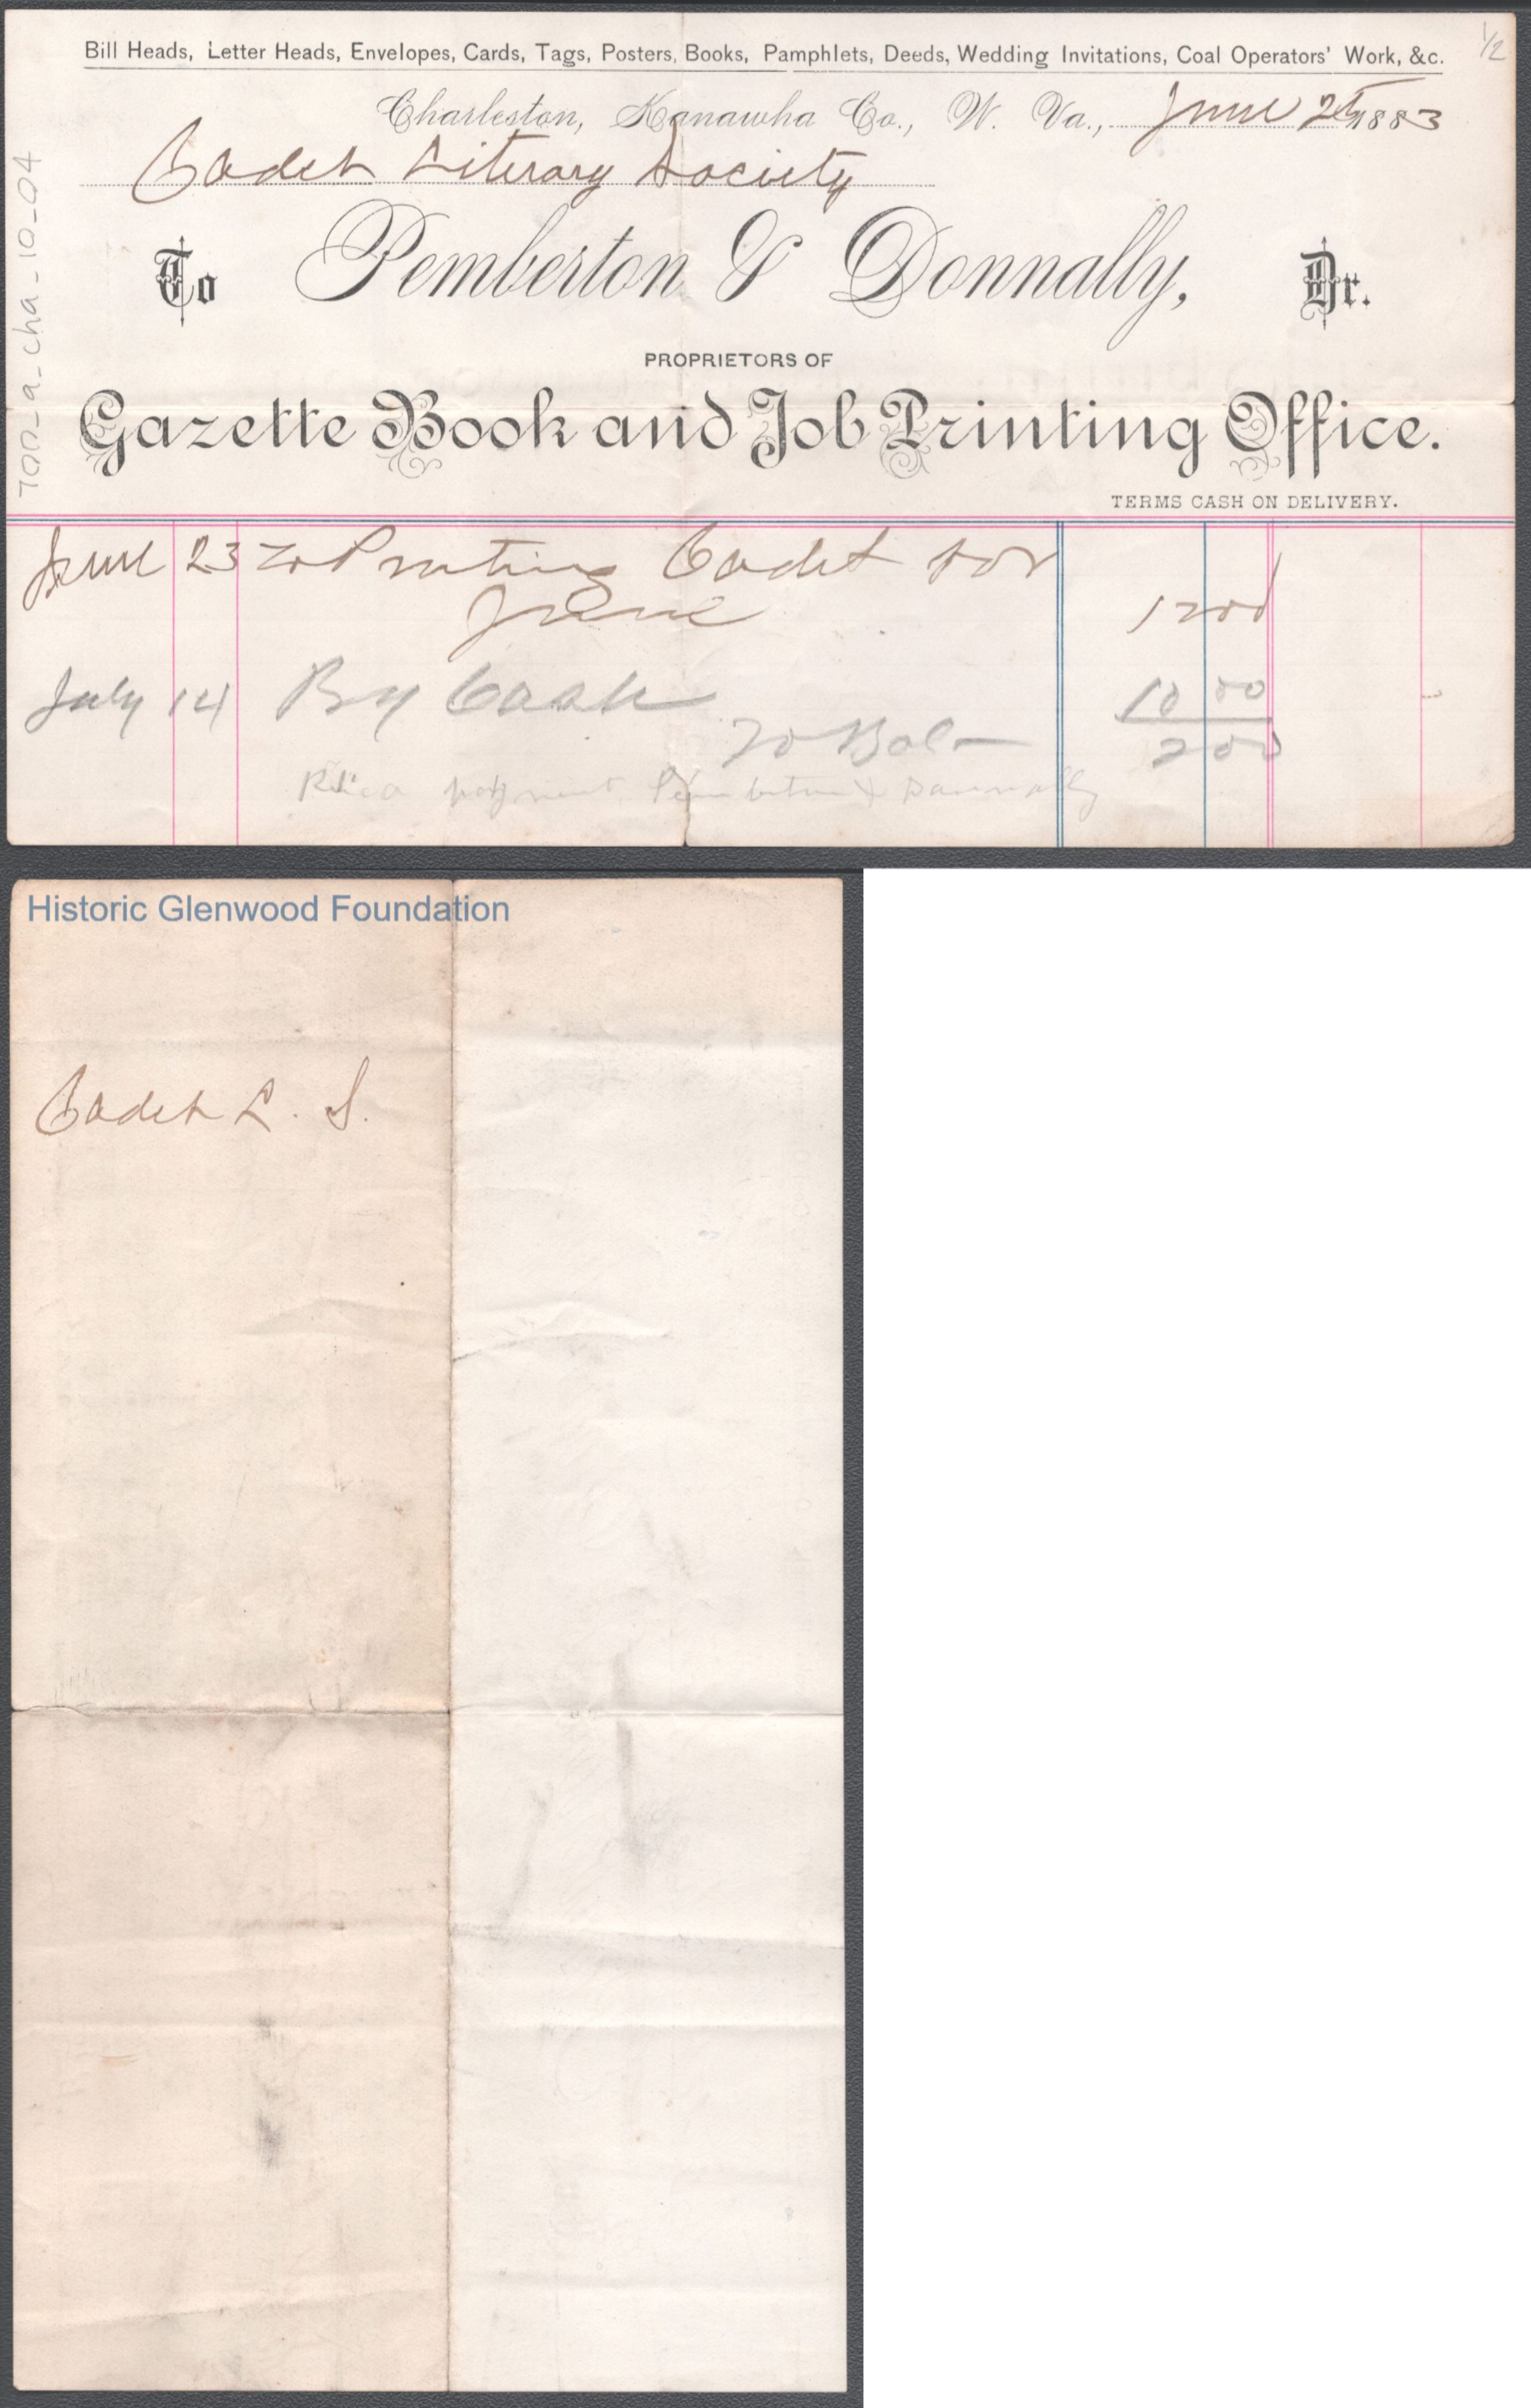 Bill Heads, Letter Heads, Envelopes, Cards, Tags, Posters, Books, Pamphlets, Deeds, Wedding Invitations, Coal Operators' Work, &c.
1/2
Charleston, Kanawha Co., W. Va., June 1883
Cadet Literary Society
To Pemberton & Donnally, Dr.
PROPRIETORS OF
Gazette Book and Job Printing Office.
TERMS CASH ON DELIVERY.
June 23 To Printing Cadet for
June 12 00
July 14 By Cash 10 00
To Bal 2 00
payment Pemberton & Donnally
700_a_cha_10_04
Historic Glenwood Foundation
Cadet L. S.